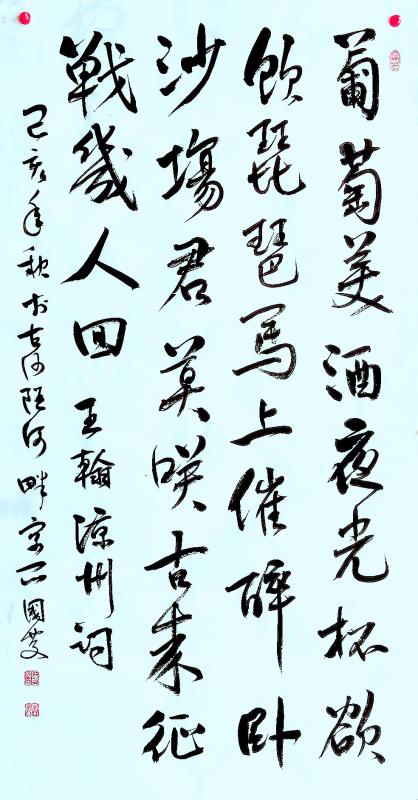 葡萄美酒夜光杯欲
飲琵琶馬上催醉卧
沙塲君莫咲古来征
戰幾人回 王翰涼州詞
己亥年秋於古 河畔 國